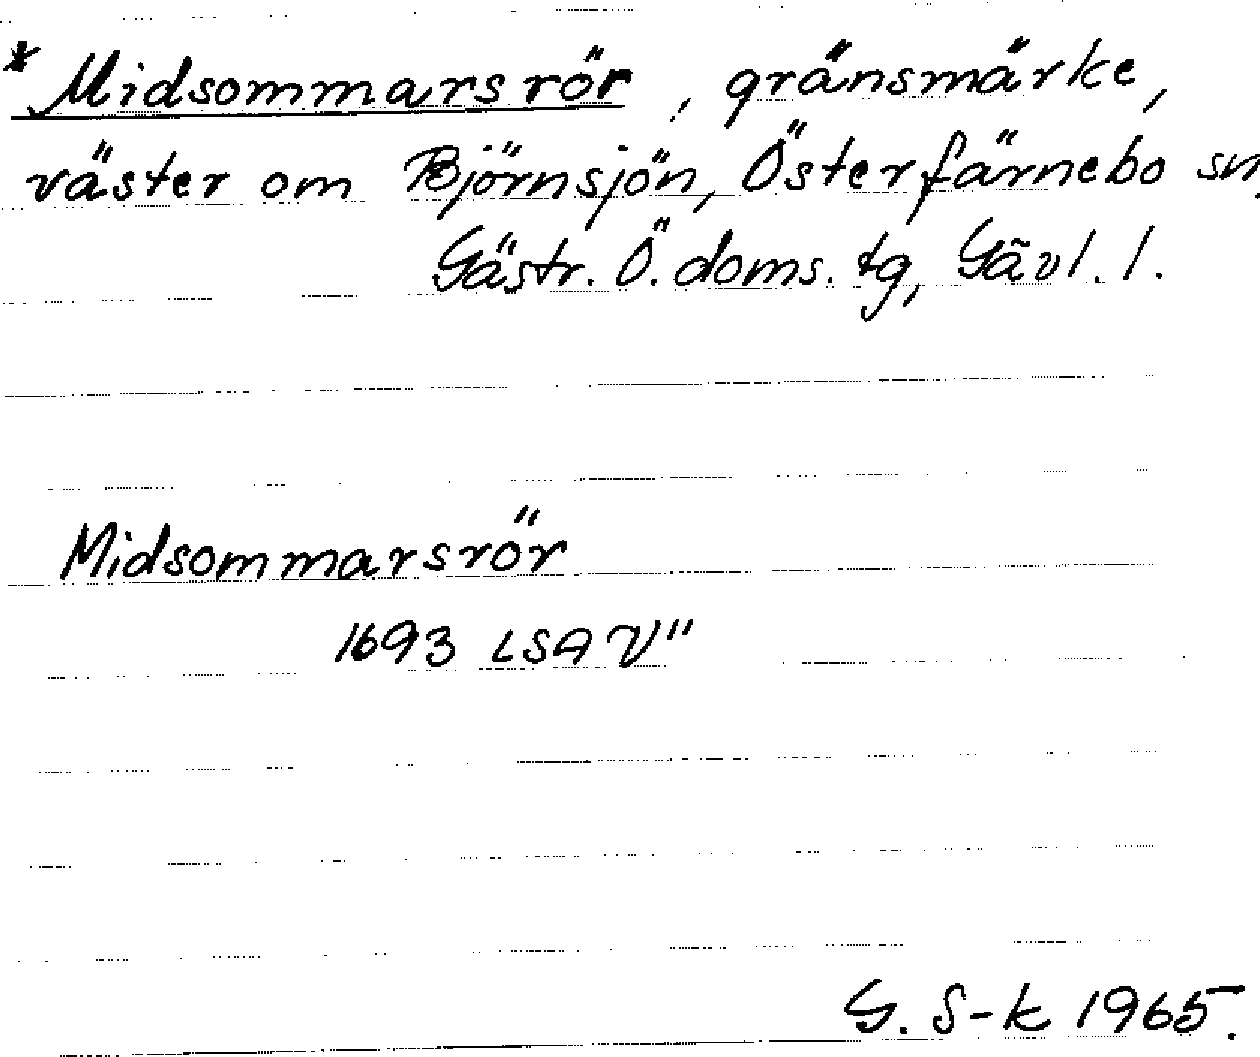 * Midsommarsrör, gränsmärke,
väster om Björnsjön, Österfärnebo sn,
Gästr. Ö. doms. tg, Gävl. l.
Midsommarsrör
1693 LSA V"
G. S-k 1965.